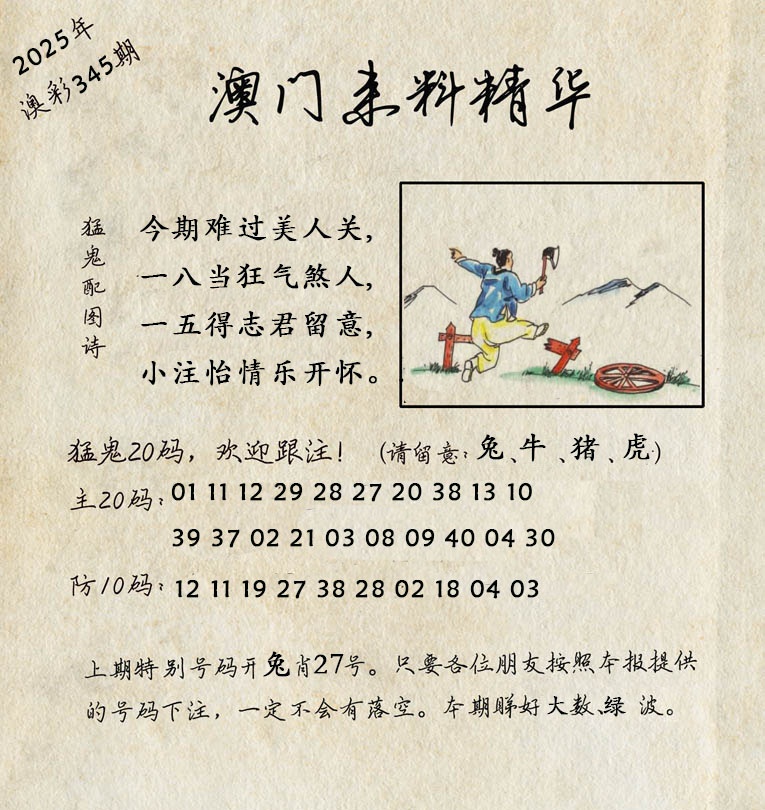 2025年
澳彩345期
澳门来料精华
猛鬼配图诗
今期难过美人关,
一八当狂气煞人,
一五得志君留意,
小注怡情乐开怀。
猛鬼20码,欢迎跟注! (请留意:兔、牛、猪、虎)
主20码:01 11 12 29 28 27 20 38 13 10
39 37 02 21 03 08 09 40 04 30
防10码:12 11 19 27 38 28 02 18 04 03
上期特别号码开兔肖27号。只要各位朋友按照本报提供
的号码下注,一定不会有落空。本期睇好大数、绿 波。